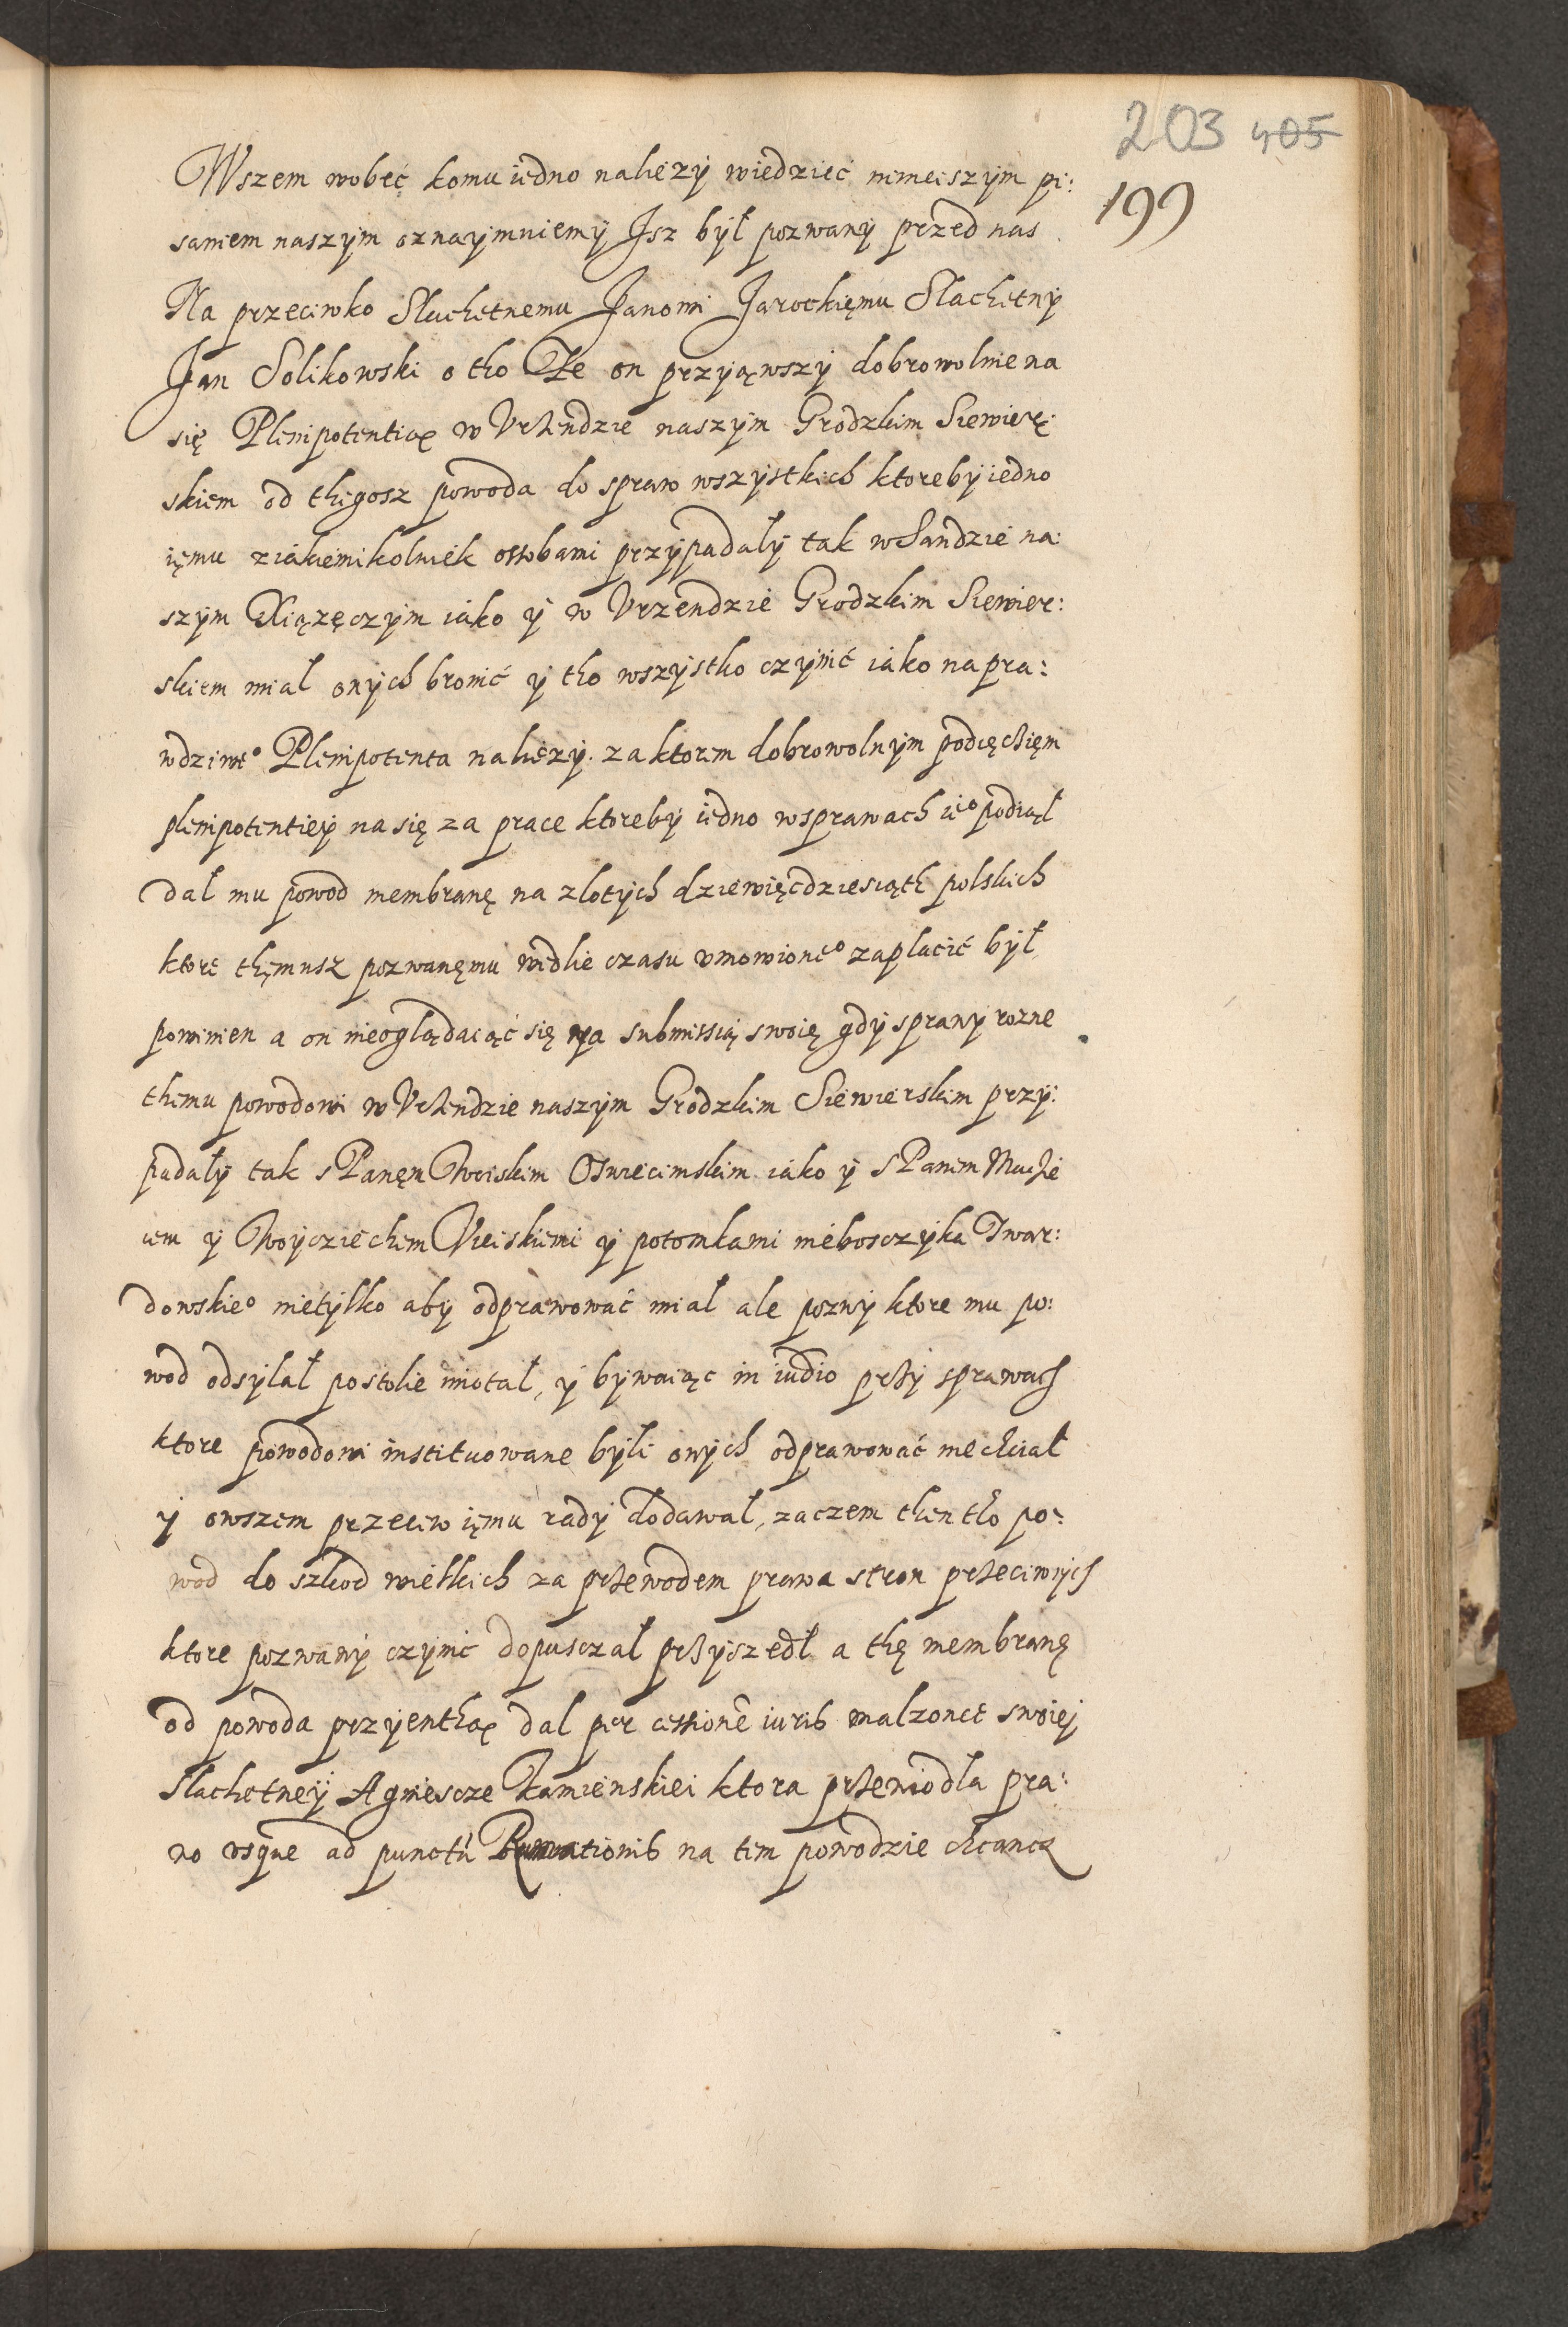 203 405
199
Wszem wobec komu iedno należy wiedzieć ninieiszym pi:
saniem naszym oznaymuiemy Jsz był pozwany przed nas
Na przeciwko Slachetnemu Janowi Jarockięmu Slachetny
Jan Solikowski o tho Że on przyiąwszy dobrowolnie na
się Plenipotentią w Vrzendzie naszym Grodzkim Siewier:
skiem od thegosz powoda do spraw wszystkich ktoreby iedno
ięmu ziakiemikolwiek ossobami przypadały tak w Sandzie na:
szym Xiążęczym iako y w Vrzendzie Grodzkim Siewier:
skiem miał onych bronić y tho wszystko czynić iako na pra:
wdziweo Plenipotenta należy. za ktorem dobrowolnym podięciem
plenipotentiey na się za prace ktoreby iedno w sprawach ieo podiął
dał mu powod membranę na złotych dziewięcdziesiąth polskich
ktore thęmusz pozwanęmu wedlie czasu vmowioneo zapłacić był
powinien a on nieoglądaiąć się na submissią swoię gdy sprawy rozne
themu powodowi w Vrzendzie naszym Grodzkim Siewierskim przy:
padały tak s Panęm Woiskim Oswiecimskim iako y s Panem Macie
iem y Woyciechem Vieiskiemi y potomkami nieboszczyka Twar:
dowskieo nietylko aby odprawować miał ale pozwy ktore mu po:
wod odsyłał po stolie miotał, y bywaiąc in iudio przy sprawach
ktore powodowi instituowane byli onych odprawować niechciał
y owszem przeciw ięmu rady dodawał, zaczem then tho po:
wod do szkod wielkich za przewodem prawa stron przeciwnych
ktore pozwany czynić dopusczał przyszedł a thę membranę
od powoda przyienthą dał per cessione iuris malzonce swoiej
Slachetney Agniescze Kamienskiei ktora przewiodła pra:
wo vsque ad punctu na tem powodzie chcancz